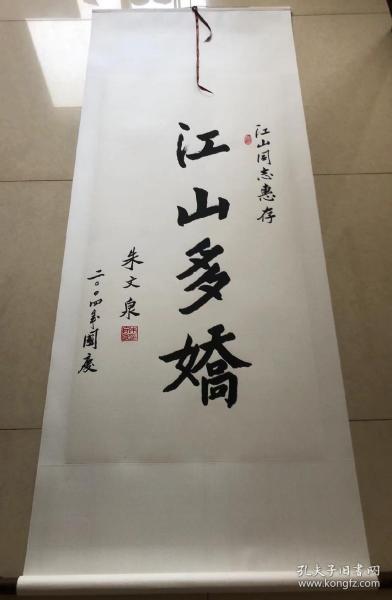 江山同志惠存
江山多嬌
朱文泉
二〇〇四年國慶
孔夫子旧书网
www.kongfz.com